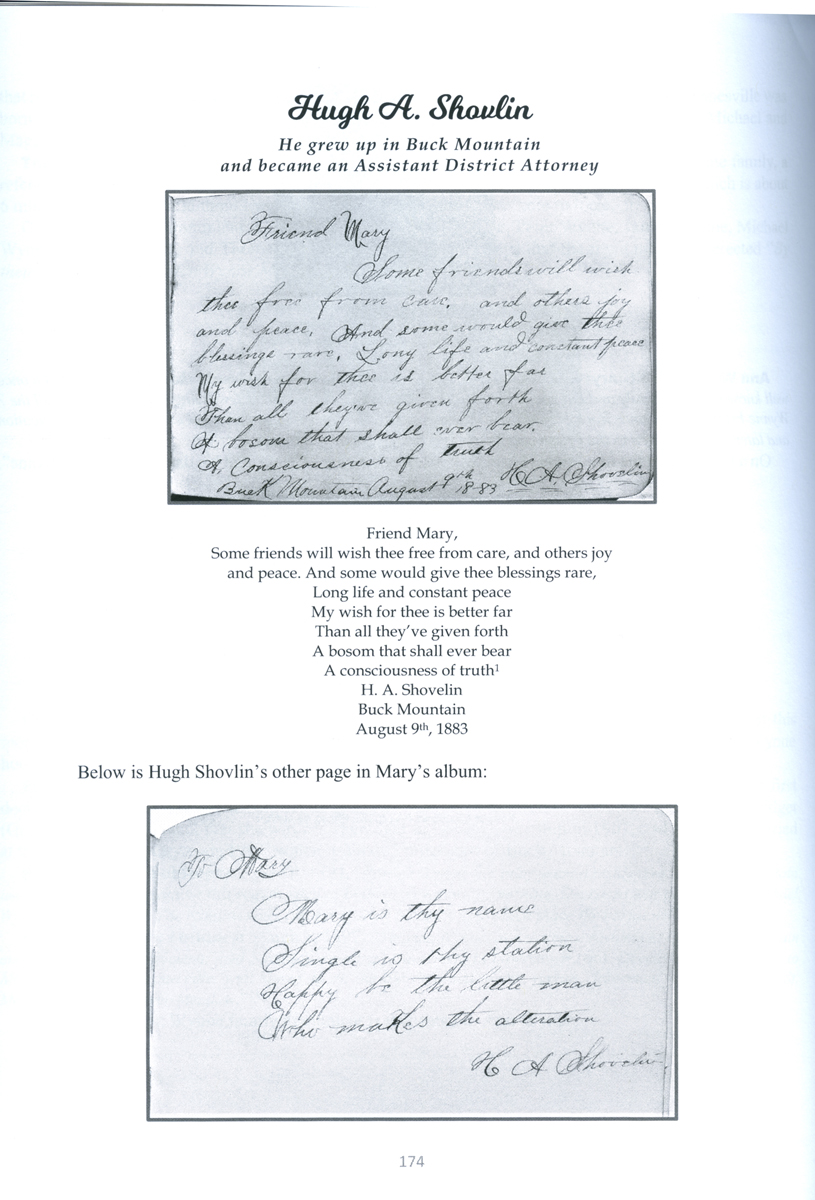 Hugh A. Shovlin
He grew up in Buck Mountain
and became an Assistant District Attorney
Friend Mary
Some friends will wish
thee free from care, and others joy
and peace. And some would give thee
blessings rare, Long life and constant peace
My wish for thee is better far
Than all they've given forth
A bosom that shall ever bear.
A, Consciousness of truth
Buck Mountain August 9th 1883 H. A. Shovelin
Friend Mary,
Some friends will wish thee free from care, and others joy
and peace. And some would give thee blessings rare,
Long life and constant peace
My wish for thee is better far
Than all they've given forth
A bosom that shall ever bear
A consciousness of truth¹
H. A. Shovelin
Buck Mountain
August 9th, 1883
Below is Hugh Shovlin's other page in Mary's album:
To Mary
Mary is thy name
Single is thy station
Happy be the little man
Who makes the alteration
H A Shovelin
174